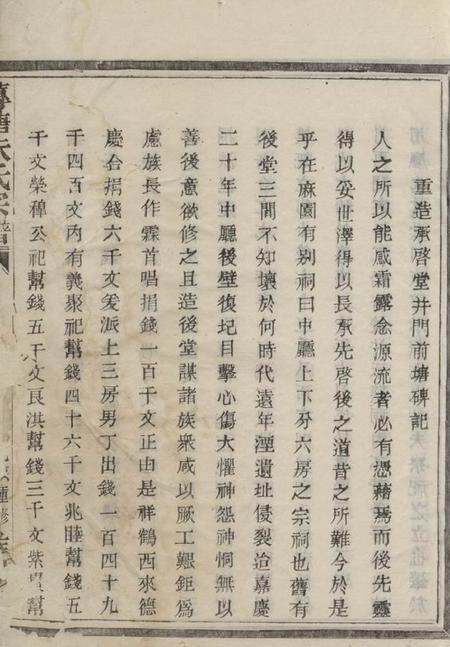 重造承啓堂井門前塘碑記
人之所以能感霜露念源流者必有憑藉焉而後先靈
得以妥世澤得以長承先啓後之道昔之所難今於是
乎在麻園有别祠曰中廳上下分六房之宗祠也舊有
後堂三間不知壞於何時代遠年湮遺址侵裂迨嘉慶
二十年中廳後壁復圮目擊心傷大懼神怨神恫無以
善後意欲修之且造後堂謀諸族衆咸以厥工艱鉅爲
慮族長作霖首唱捐錢一百千文正由是祥鶴西來德
慶合捐錢六千文爰派上三房男丁出錢一百四十九
千四百文內有義聚祀幫錢四十六千文兆睦幫錢五
千文榮稗公祀幫錢五千文良洪幫錢三千文紫
幫
氏宗譜